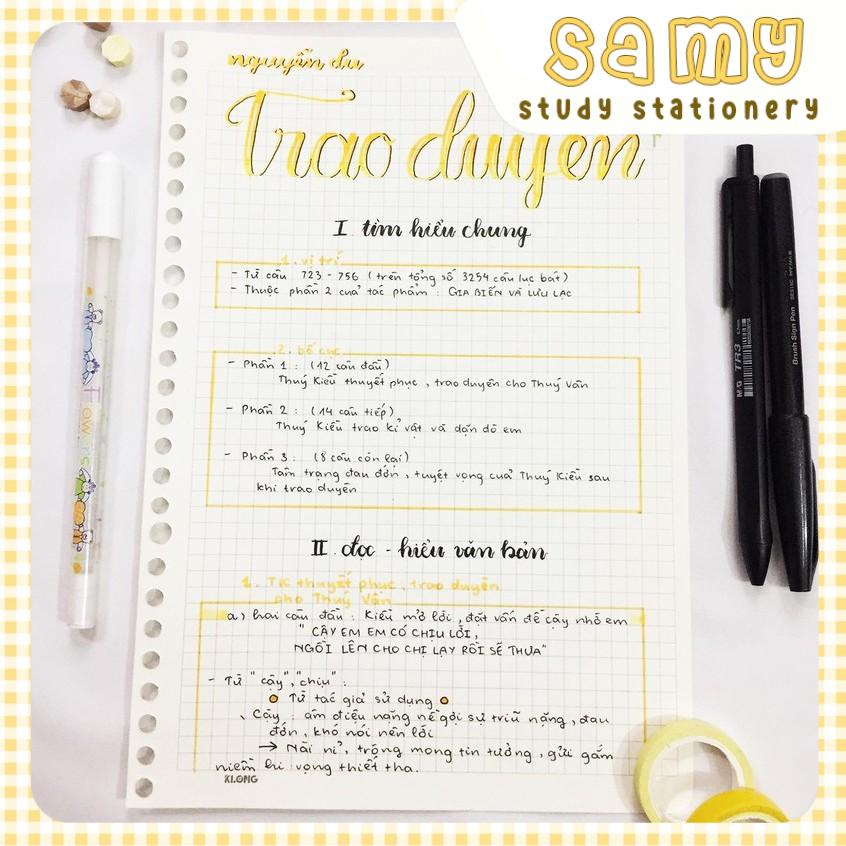 samy
study stationery
nguyễn du
Trao duyên
I. tìm hiểu chung
1. vị trí
- Từ câu 723 - 756 (trên tổng số 3254 câu lục bát)
- Thuộc phần 2 cuả tác phẩm : GIA BIẾN VÀ LƯU LẠC
2. bố cục
- Phần 1 : (12 câu đầu)
Thuý Kiều thuyết phục, trao duyên cho Thuý Vân
- Phần 2 : (14 câu tiếp)
Thuý Kiều trao kỉ vật và dặn dò em
- Phần 3 : (8 câu còn lại)
Tâm trạng đau đớn, tuyệt vọng cuả Thuý Kiều sau
khi trao duyên
II. đọc - hiểu văn bản
1. TK thuyết phục, trao duyên
cho Thuý Vân
a) hai câu đầu : Kiều mở lời, đặt vấn đề cậy nhờ em
" CẬY EM EM CÓ CHỊU LỜI,
NGỒI LÊN CHO CHỊ LẠY RỒI SẼ THƯA"
- Từ "cậy", "chịu" :
Từ tác giả sử dụng
Cậy : âm điệu nặng nề gợi sự trĩu nặng, đau
đớn, khó nói nên lời
→ Nài nỉ, trông mong tin tưởng, gửi gắm
niềm hi vọng thiết tha.
KLONG
Flowers
M&G TR3
Brush Sign Pen